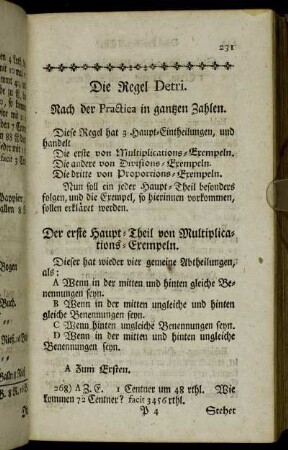 231
Die Regel Detri.
Nach der Practica in gantzen Zahlen.
Diese Regel hat 3 Haupt-Eintheilungen, und
handelt
Die erste von Multiplications-Exempeln.
Die andere von Divisions-Exempeln.
Die dritte von Proportions-Exempeln.
Nun soll ein jeder Haupt-Theil besonders
folgen, und die Exempel, so hierinnen vorkommen,
sollen erkläret werden.
Der erste Haupt-Theil von Multiplica-
tions-Exempeln.
Dieser hat wieder vier gemeine Abtheilungen,
als:
A Wenn in der mitten und hinten gleiche Be-
nennungen seyn.
B Wenn in der mitten ungleiche und hinten
gleiche Benennungen seyn.
C Wenn hinten ungleiche Benennungen seyn.
D Wenn in der mitten und hinten ungleiche
Benennungen seyn.
A Zum Ersten.
268) A Z. E. 1 Centner um 48 rthl. Wie
kommen 72 Centner? facit 3456 rthl.
P 4 Stehet
Bogen
Buch.